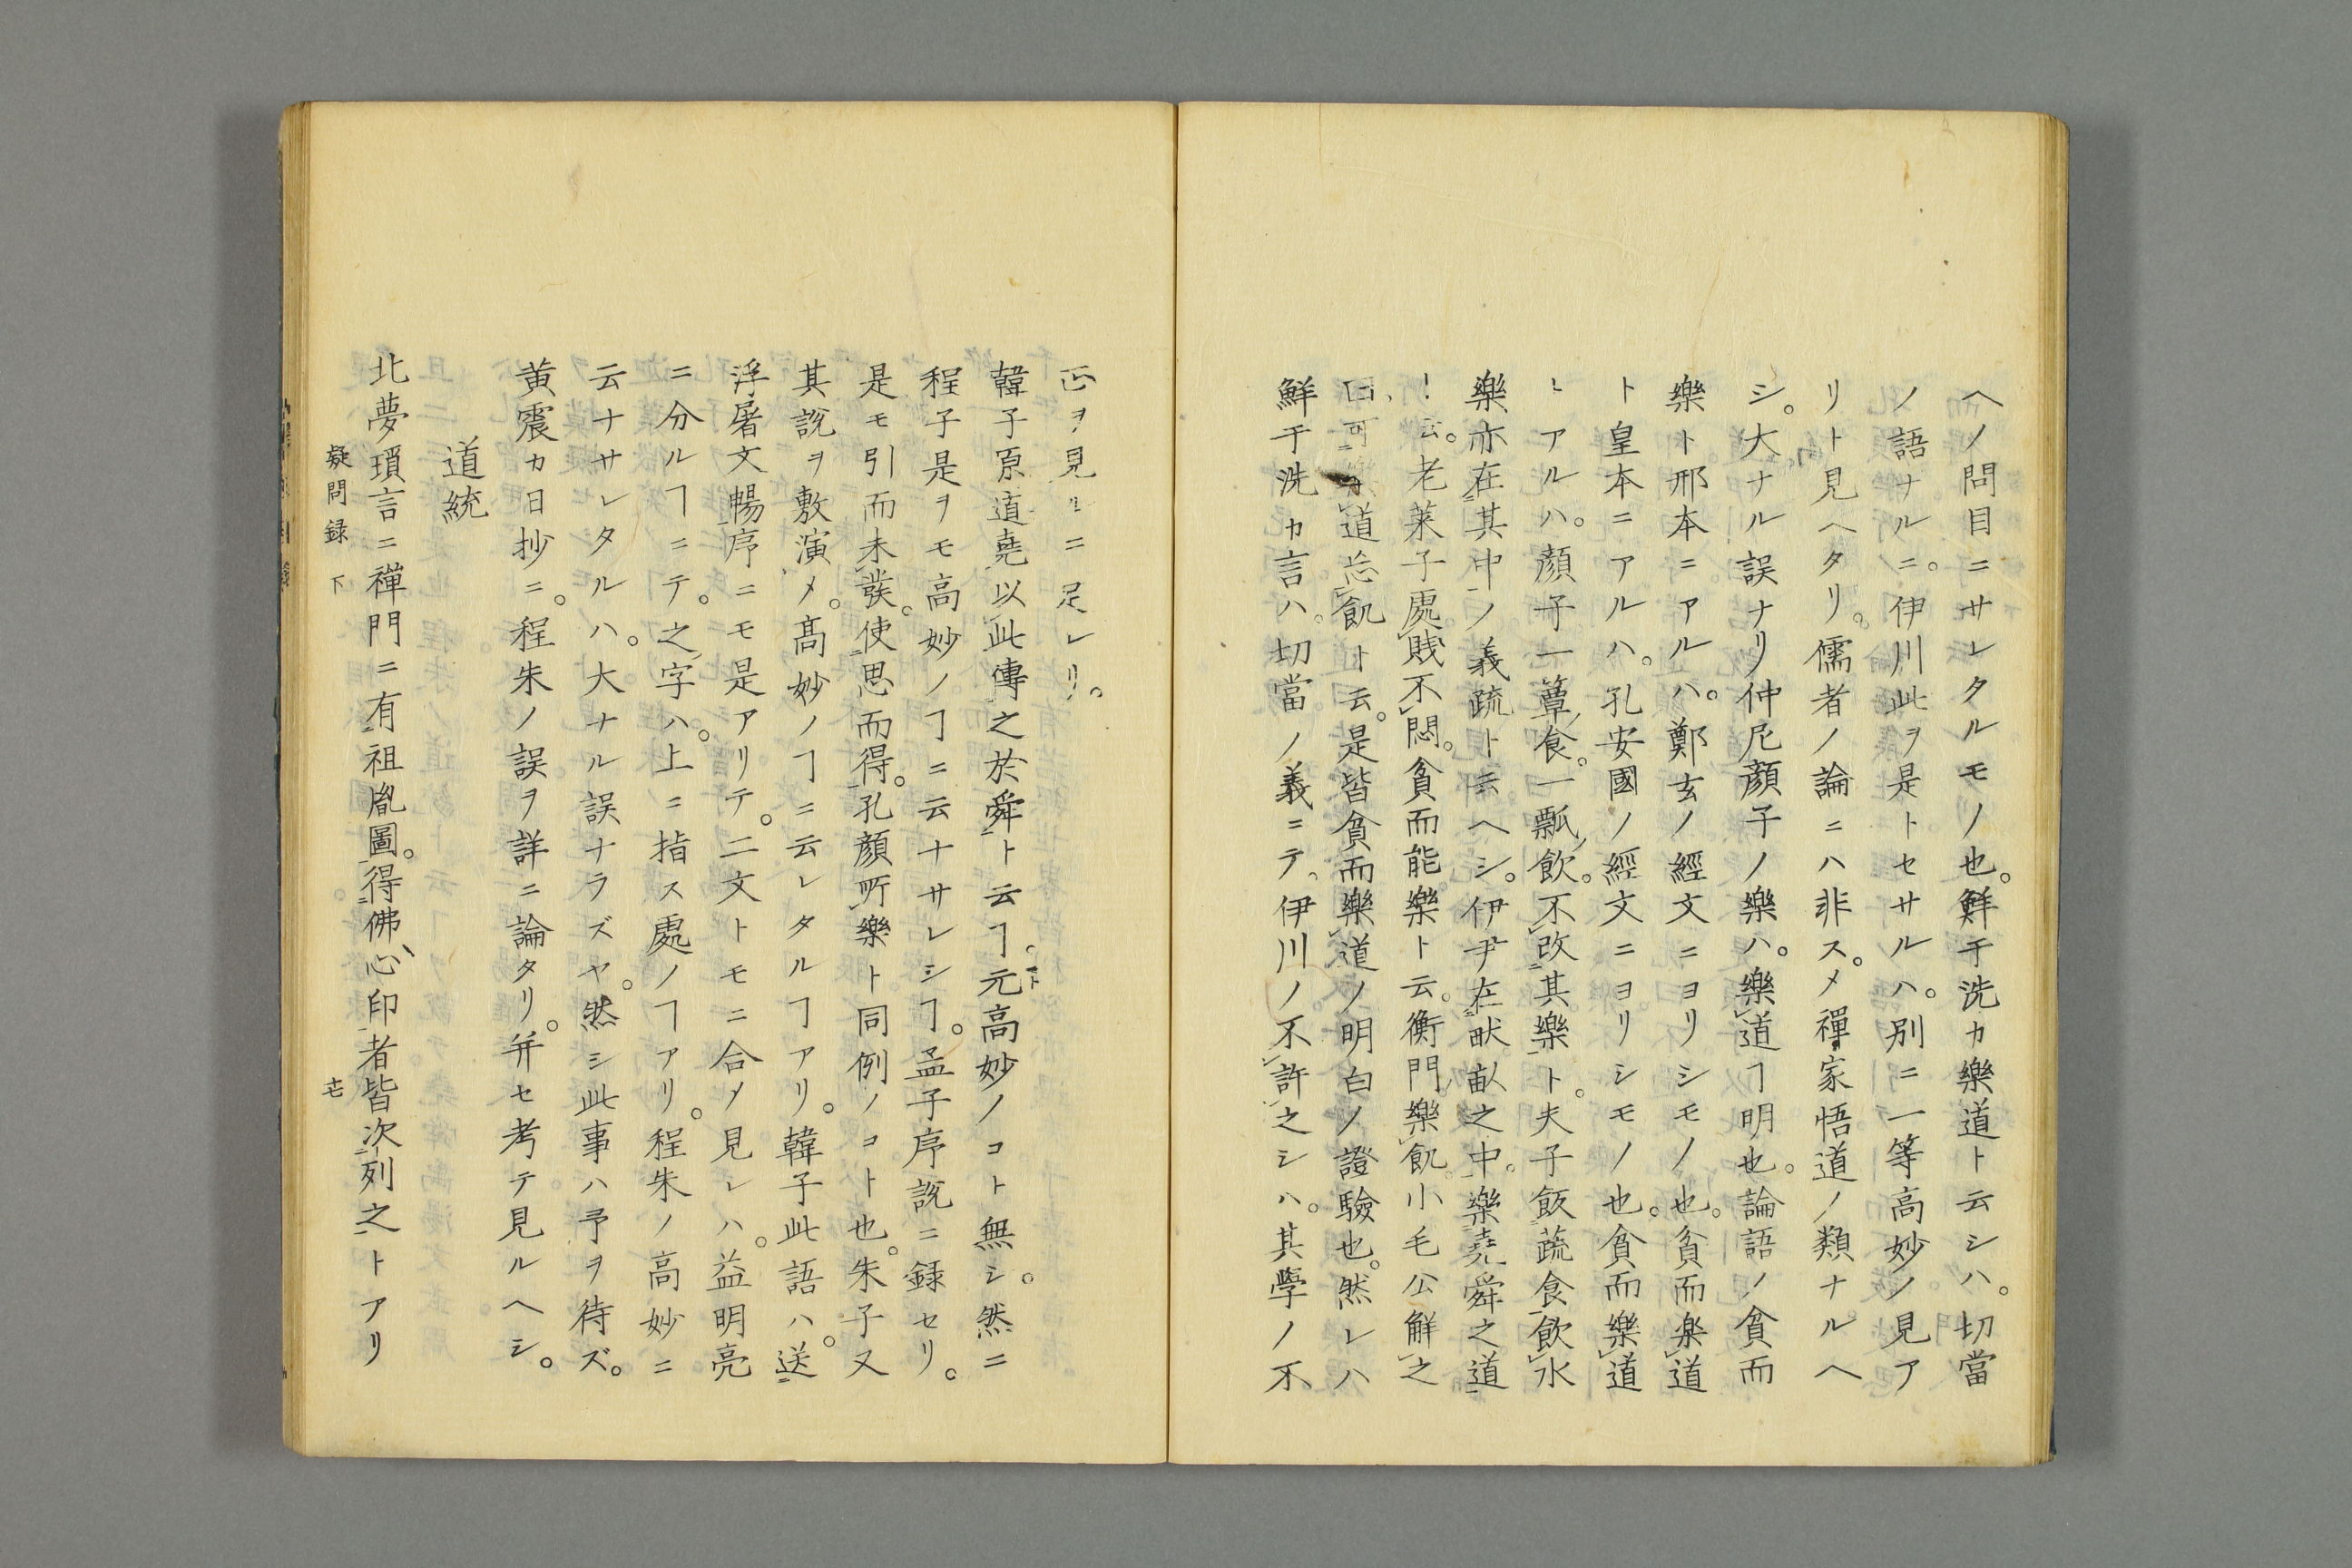 ヘノ問目ニサレタルモノ也。鮮于洗カ樂道ト云シハ。切當
ノ語ナルニ。伊川此ヲ是トセサルハ。別ニ一等高妙ノ見ア
リト見ヘタリ。儒者ノ論ニハ非ス。〆禪家悟道ノ類ナルヘ
シ。大ナル誤ナリ仲尼顔子ノ樂ハ。樂道ヿ明也。論語ノ貧而
樂ト邢本ニアルハ。鄭玄ノ經文ニヨリシモノ也。貧而楽道
ト皇本ニアルハ。孔安國ノ經文ニヨリシモノ也。貧而樂道
トアルハ。顔子一簞食。一瓢飲。不改其樂ト。夫子飯蔬食飲水
樂亦在其中ノ義疏ト云ヘシ。伊尹在畎畝之中。樂堯舜之道
ト云。老莱子處賤不悶。貧而能樂ト云。衡門樂飢。小毛公解之
曰可樂道忘飢ト云。是皆貧而樂道ノ明白ノ證驗也。然レハ
鮮于洗カ言ハ。切當ノ義ニテ。伊川ノ不許之シハ。其學ノ不
正ヲ見ルニ足レリ。
韓子原道堯以此傳之於舜ト云ヿ。元ト高妙ノコト無シ。然ニ
程子是ヲモ高妙ノヿニ云ナサレシヿ。孟子序説ニ録セリ。
是モ引而未發。使思而得。孔顔所樂ト同例ノコト也。朱子又
其説ヲ敷演〆。高妙ノヿニ云レタルヿアリ。韓子此語ハ。送
浮屠文暢序ニモ是アリテ。二文トモニ合〆見レハ。益明亮
ニ分ルヿニテ。之字ハ。上ニ指ス處ノヿアリ。程朱ノ高妙ニ
云ナサレタルハ。大ナル誤ナラズヤ。然シ此事ハ予ヲ待ズ。
黄震カ日抄ニ。程朱ノ誤ヲ詳ニ論タリ。并セ考テ見ルヘシ。
道統
北夢瑣言ニ禪門ニ有祖胤圖。得佛心印者皆次列之トアリ
疑問録 下